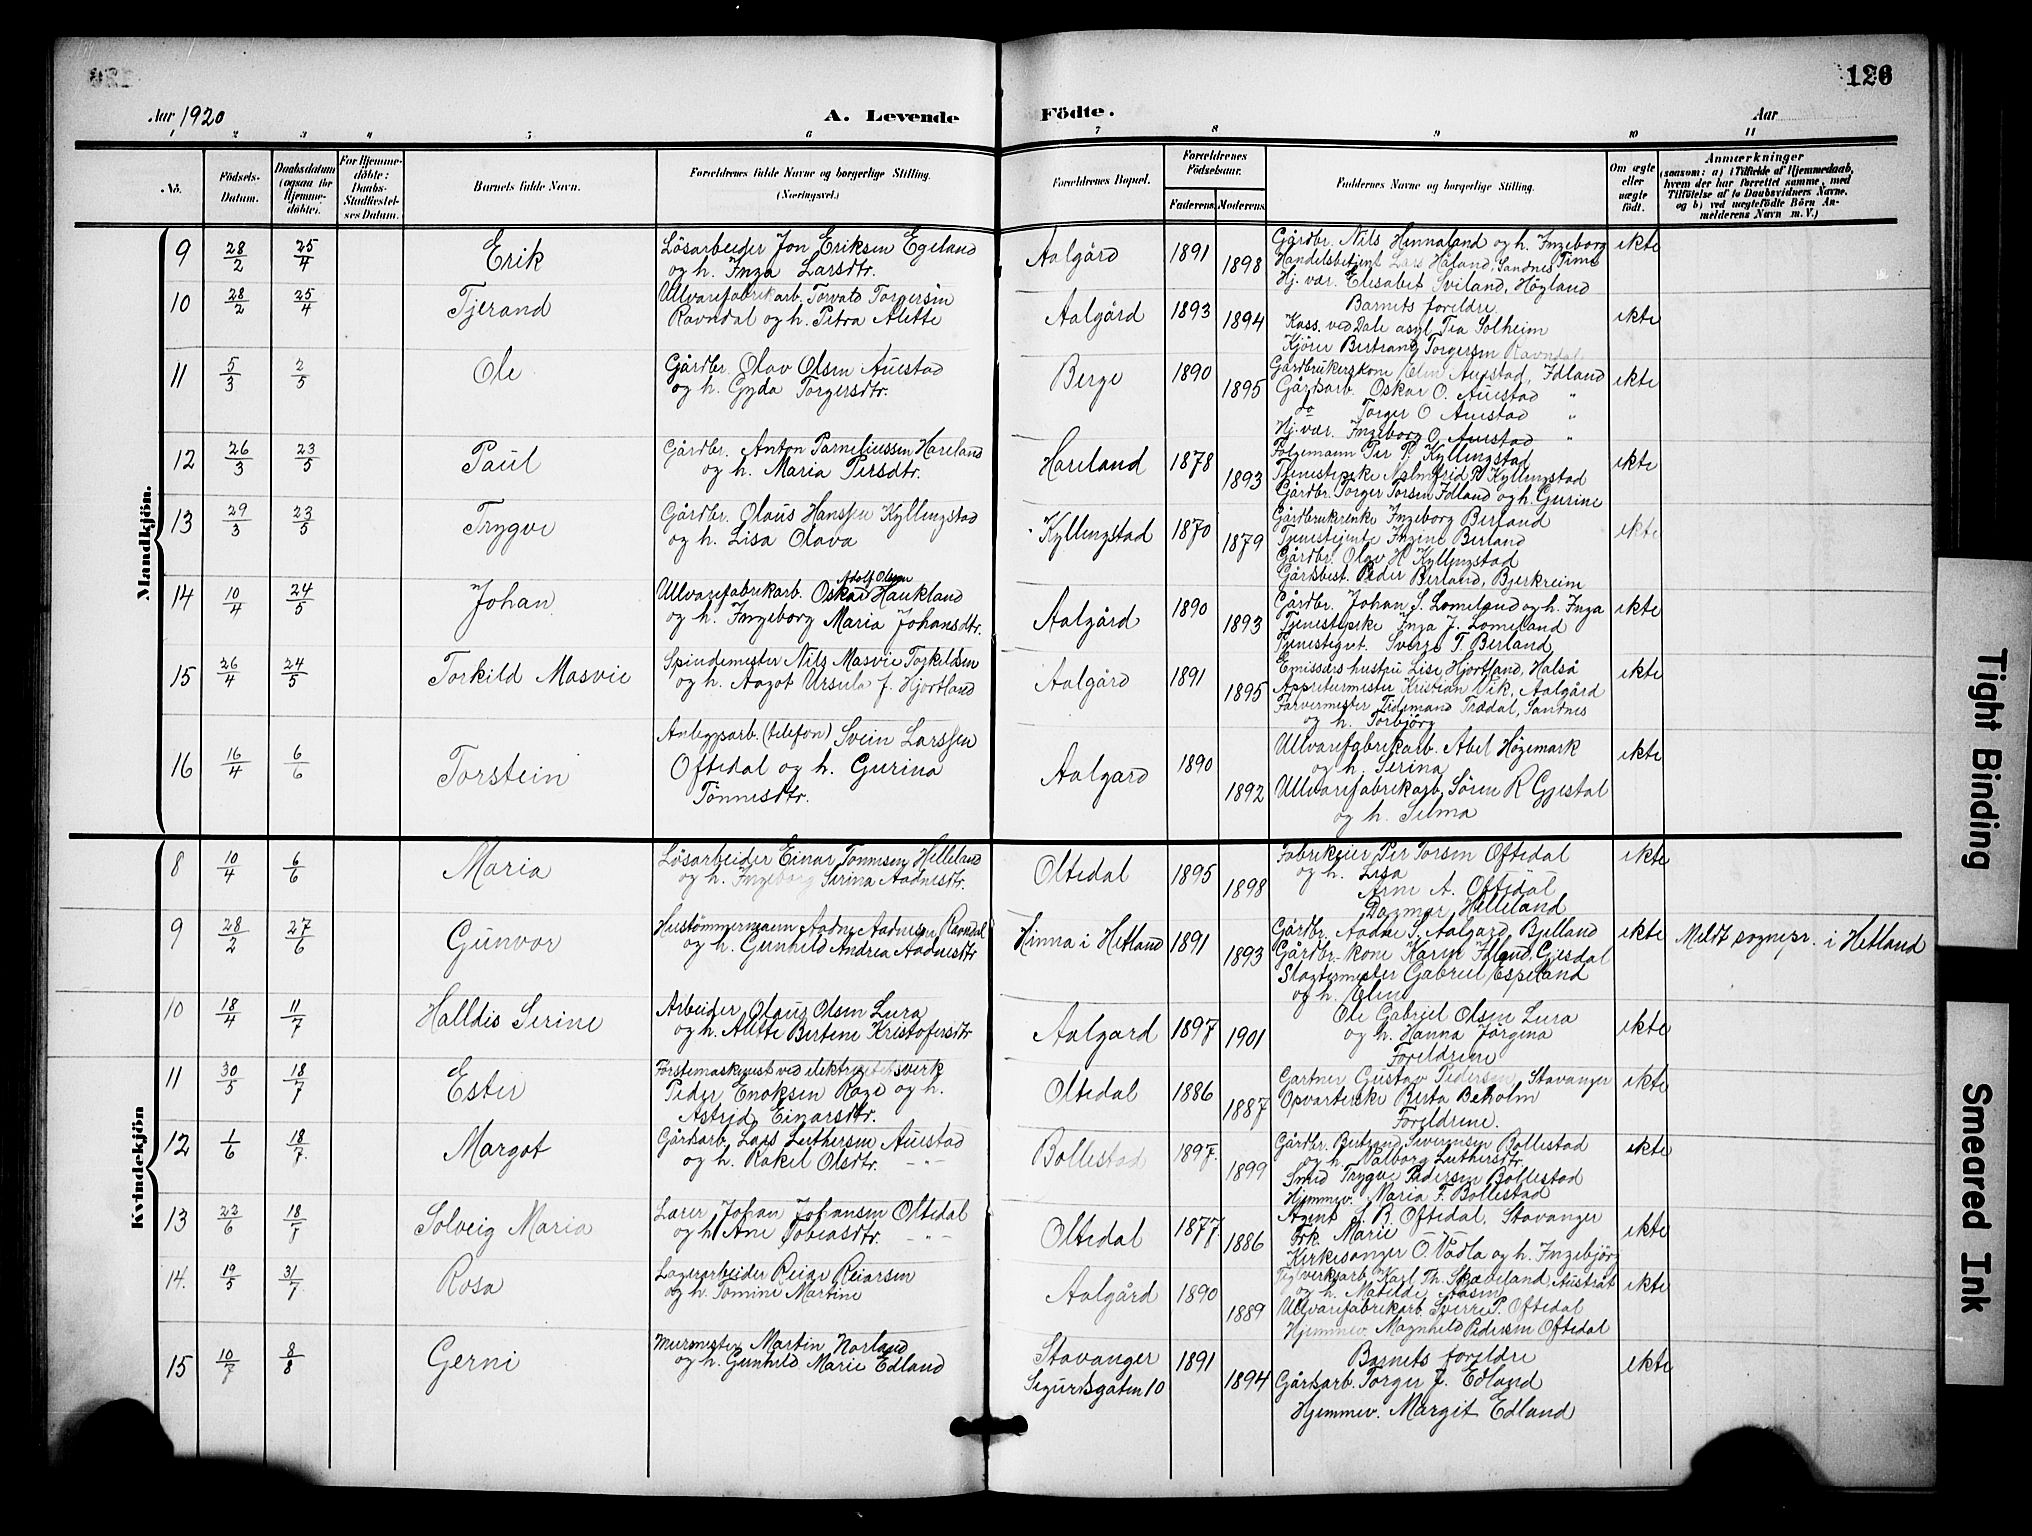 126
Aar 1920
A. Levende Födte.
Aar
2 3 4 5 6 7 8 9 10 11
No.
Födsels-Datum.
Daabsdatum (ogsaa for Hjemmedöbte).
For Hjemmedöbte: Daabs-Stadfæstelses Datum.
Barnets fulde Navn.
Forældrenes fulde Navne og borgerlige Stilling. (Næringsvei.)
Forældrenes Bopæl.
Forældrenes Födselsaar.
Faderens. Moderens.
Faddernes Navne og borgerlige Stilling.
Om ægte eller uægte födt.
Anmærkninger
(saasom: a) i Tilfælde af Hjemmedaab, hvem der har forrettet samme, med Tilföielse af to Daabsvidners Navne, og b) ved uægtefödte Börn Anmelderens Navn m. V.)
Mandkjön.
9 28/2 25/4 Erik
Lösarbeider Jon Eriksen Egeland
og h. Inga Larsdtr.
Aalgård 1891 1898
Gårdbr. Nils Hinnaland og h. Ingeborg
Handelsbetjent Lars Håland, Sandnes Time
Hj. vær. Elisabet Sviland, Høyland
ekte
10 28/2 25/4 Tjerand
Ullvarefabrikarb. Torvald Torgersen
Ravndal og h. Petra Alette
Aalgård 1893 1894
Barnets foreldre.
Kass. ved Dale asyl Tea Solheim
Kjører Bertrand Torgersen Ravndal
ekte
11 5/3 2/5 Ole
Gårdbr. Olav Olsen Auestad
og h. Gyda Torgersdtr.
Berge 1890 1895
Gårdbrukerskone Elen Auestad, Edland
Gårdsarb. Oskar O. Auestad "
do Torger O Auestad "
Hj. vær. Ingeborg O. Auestad "
ekte
12 26/3 23/5 Paul
Gårdbr. Anton Parneliussen Hareland
og h. Maria Persdtr.
Hareland 1878 1893
Følgemann Per P. Kyllingstad
Tjenestepike Malmfrid P. Kyllingstad
Gårdbr. Torger Torsen Edland og h. Gurine
ekte
13 29/3 23/5 Trygve
Gårdbr. Olaus Hanssen Kyllingstad
og h. Lisa Olava
Kyllingstad 1870 1879
Gårdbrukerenke Ingeborg Berland
Tjenestejente Ingine Berland
Gårdbr. Olav H Kyllingstad
Gårdsbest. Peder Berland, Bjerkreim
ekte
14 10/4 24/5 Johan
Adolf Olsen
Ullvarefabrikarb. Oskar Haukland
og h. Ingeborg Maria Johansdtr.
Aalgård 1890 1893
Gårdbr. Johan S. Lomeland og h. Inga
Tjenestepike Inga J. Lomeland
Tjenestegut. Sverge T. Berland
ekte
15 26/4 24/5 Torkild Masvie
Spindemester Nils Masvie Torkildsen
og h. Aagot Ursula f. Hjortland
Aalgård 1891 1895
Emissærs hustru Lise Hjortland, Halså
Appreturmester Kristian Vik, Aalgård
Farvermester Tidemand Trædal, Sandnes
og h. Torbjørg
ekte
16 16/4 6/6 Torstein
Anleggsarb. (telefon) Svein Larssen
Oftedal og h. Gurina
Tønnesdtr.
Aalgard 1890 1892
Ullvarefabrikarb. Abel Høgemark
og h. Serina
Ullvarefabrikarb. Sören R Gjestal
og h. Selma
ekte
Kvindekjön
8 10/4 6/6 Maria
Lösarbeider Einar Tonnesen Helleland
og h. Ingeborg Serina Aadnesdtr.
Oltedal 1895 1898
Fabrikeier Per Torsen Oftedal
og h. Lisa
Arne A. Oftedal
Dagmar Helleland
ekte
9 28/2 27/6 Gunvor
Hustømmermann Aadne Aadnesen Ravndal
og h. Gunhild Andrea Aadnesdtr
Hinna i Hetland 1891 1893
Gårdbr. Aadne S. Aalgard, Bjelland
Gårdbr.-kone Karen Edland, Gjesdal
Slagtermester Gabriel Espeland
og h. Elen
ekte
Meldt sognepr. i Hetland
10 18/4 11/7 Halldis Serine
Arbeider Olaus Olsen Lura
og h. Alette Bertine Kristofersdtr
Aalgard 1897 1901
Ole Gabriel Olsen Lura
og h. Hanna Jörgina
Foreldrene
ekte
11 30/5 18/7 Ester
Førstemaskinist ved elektrisitetsverk
Peder Enoksen Rage og h.
Astrid Einarsdtr.
Oltedal 1886 1887
Gartner Gustav Pedersen, Stavanger
Opvarterske Berta Bekolm
Foreldrene.
ekte
12 1/6 18/7 Margot
Gårdsarb. Lars Luthersen Auestad
og h. Rakel Olsdtr. -"-
Bollestad 1897. 1899
Gårdbr. Bertrand Sivertsen Bollestad
og h. Valborg Luthersdtr.
Smed Trygve Pedersen Bollestad
Hjemmev. Maria F. Bollestad
ekte
13 22/6 18/7 Solveig Maria
Lærer Johan Johansen Oltedal
og h Ane Tobiasdtr. -"-
Oltedal 1877 1886
Agent S. B. Oftedal, Stavanger
Frk. Marie
Kirkesanger O. Vådla og h. Ingebjørg
ekte
14. 19/5 31/7 Rosa
Lagerarbeider Reiar Reiarsen
og h. Tomine Martine
Aalgård 1890 1889
Teglverksarb. Karl Th. Skæveland Austråt
og h. Matilde Aasen
Ullvarefabrikarb. Sverre P. Oftedal
Hjemmev. Magnhild Pedersen Oftedal
ekte
15 10/7 8/8 Gerni
Murmester Martin Norland
og h. Gunhild Marie Edland
Stavanger
Sigurdsgaten 10
1891 1894
Barnets foreldre
Gårdsarb. Torger J. Edland
Hjemmev. Margit Edland
ekte
Tight Binding
Smeared Ink